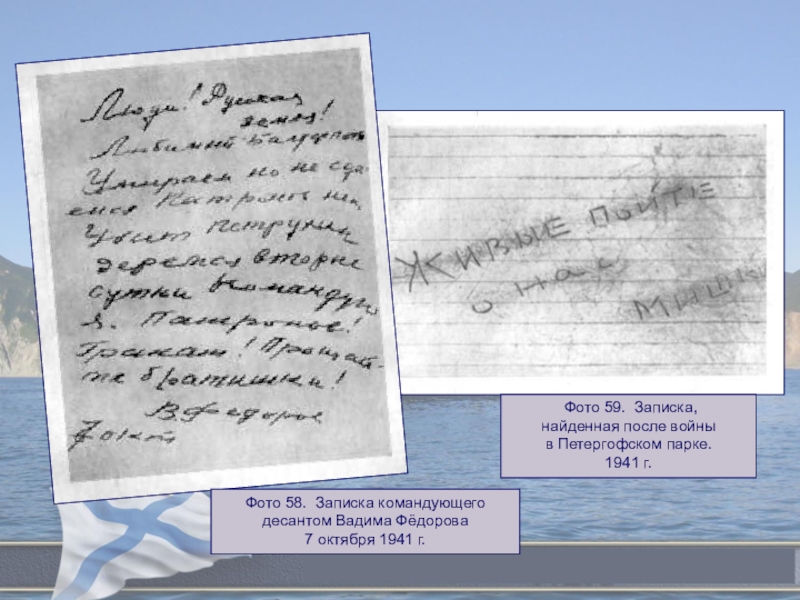 Люди! Русская
земля!
Любимый Балт
Умираем но не сда-
емся Патронов нет
Убит Петрухин
деремся вторые
сутки Командую
я. Патронов!
Гранат! Прощай-
те братишки!
В. Федоров
7 окт
Живые пойте
о нас
Мишки
Фото 58. Записка командующего
десантом Вадима Фёдорова
7 октября 1941 г.
Фото 59. Записка,
найденная после войны
в Петергофском парке.
1941 г.